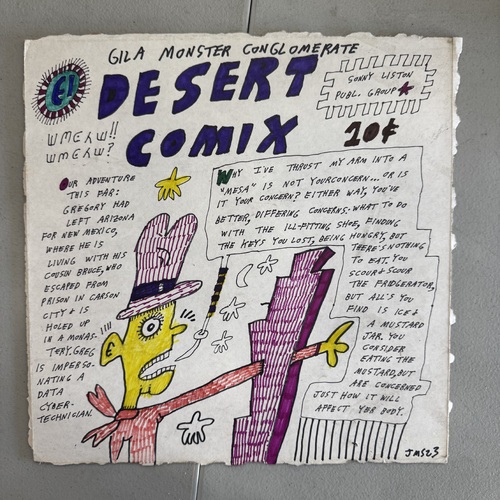 GILA MONSTER CONGLOMERATE
DESERT
COMIX
SONNY LISTON
PUBL. GROUP
10¢
OUR ADVENTURE
THIS FAR:
GREGORY HAD
LEFT ARIZONA
FOR NEW MEXICO,
WHERE HE IS
LIVING WITH HIS
COUSIN BRUCE, WHO
ESCAPED FROM
PRISON IN CARSON
CITY & IS
HOLED UP
IN A MONAS-
TORY. GREG
IS IMPERSO-
NATING A
DATA
CYBER-
TECHNICIAN.
WHY I'VE THRUST MY ARM INTO A
"MESA" IS NOT YOUR CONCERN... OR IS
IT YOUR CONCERN? EITHER WAY, YOU'VE
BETTER, DIFFERING CONCERNS: WHAT TO DO
WITH THE ILL-FITTING SHOE, FINDING
THE KEYS YOU LOST, BEING HUNGRY, BUT
THERE'S NOTHING
TO EAT. YOU
SCOUR & SCOUR
THE FRIDGERATOR,
BUT ALL YOU'S
FIND IS ICE &
A MUSTARD
JAR. YOU
CONSIDER
EATING THE
MUSTARD, BUT
ARE CONCERNED
JUST HOW IT WILL
AFFECT YOUR BODY.
JMS23